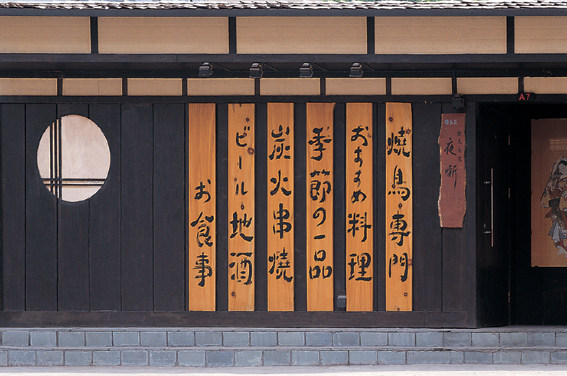 焼鳥専門
おすすめ料理
季節の一品
炭火串焼
ビール・地酒
お食事
夜噺
A7